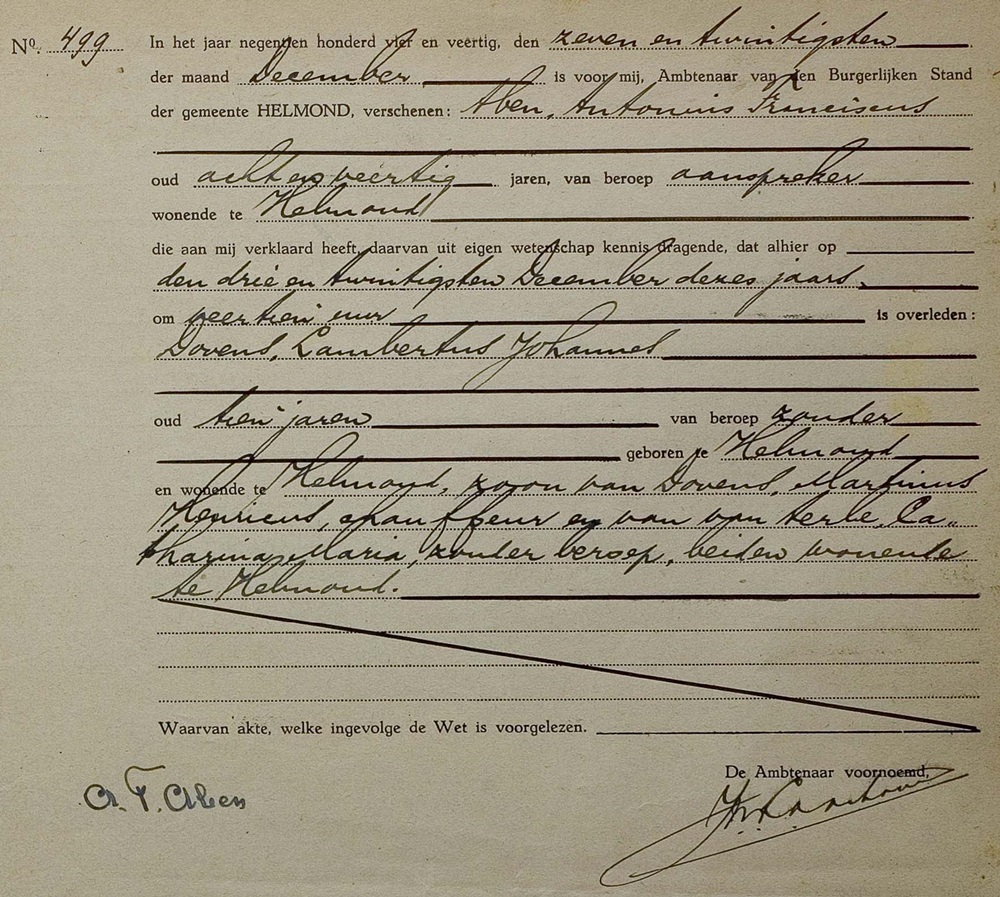 Nº. 499 In het jaar negentien honderd vier en veertig, den zeven en twintigsten
der maand December is voor mij, Ambtenaar van den Burgerlijken Stand
der gemeente HELMOND, verschenen: Aben, Antonius Franciscus
oud acht en veertig jaren, van beroep aanspreker
wonende te Helmond
die aan mij verklaard heeft, daarvan uit eigen wetenschap kennis dragende, dat alhier op
den drie en twintigsten December dezes jaars,
om veertien uur is overleden:
Dovens, Lambertus Johannes
oud tien jaren van beroep zonder
geboren te Helmond
en wonende te Helmond, zoon van Dovens, Martinus
Henricus, chauffeur en van van Lerle, Ca„
tharina Maria, zonder beroep, beiden wonende
te Helmond.
Waarvan akte, welke ingevolge de Wet is voorgelezen.
De Ambtenaar voornoemd,
A. F. Aben